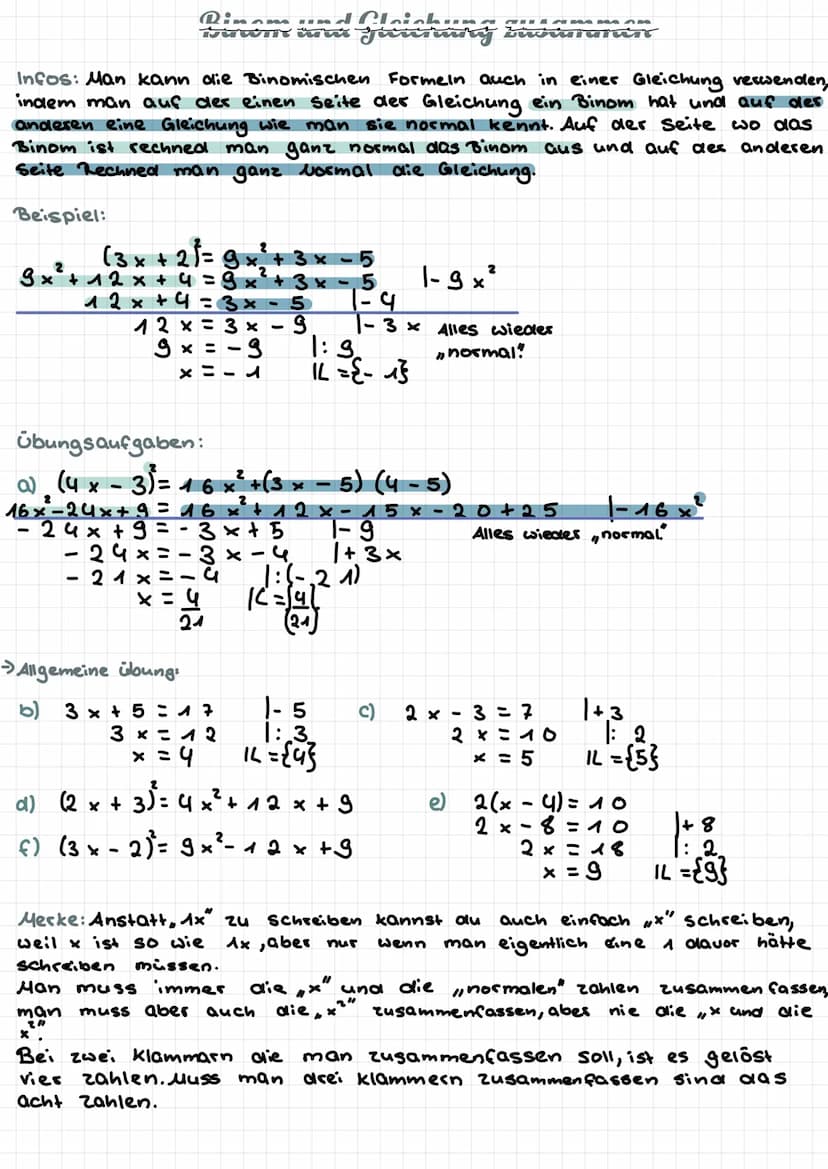 Binom und Gleichung zusammen
Infos: Man kann die Binomischen Formeln auch in einer Gleichung verwenden,
indem man auf der einen Seite der Gleichung ein Binom hat und auf der
anderen eine Gleichung wie man sie normal kennt. Auf der Seite wo das
Binom ist rechned man ganz normal das Binom aus und auf der anderen
Seite Rechned man ganz Normal die Gleichung.
Beispiel:
(3x + 2)² = 9x² + 3x - 5
9x² + 12x + 4 = 9x² + 3x - 5 |- 9x²
12x + 4 = 3x - 5 |- 4
12x = 3x - 9 |- 3x Alles wieder
9x = - 9 |: 9 „normal“
x = - 1 IL = {- 1}
Übungsaufgaben:
a) (4x - 3)² = 16x² + (3x - 5) (4 - 5)
16x² - 24x + 9 = 16x² + 12x - 15x - 20 + 25 |- 16x²
- 24x + 9 = - 3x + 5 |- 9 Alles wieder „normal“
- 24x = - 3x - 4 |+ 3x
- 21x = - 4 |: (- 21)
x = 4/21 IL = {4/21}
→ Allgemeine übung:
b) 3x + 5 = 17 |- 5 c) 2x - 3 = 7 |+ 3
3x = 12 |: 3 2x = 10 |: 2
x = 4 IL = {4} x = 5 IL = {5}
d) (2x + 3)² = 4x² + 12x + 9 e) 2(x - 4) = 10
2x - 8 = 10 |+ 8
f) (3x - 2)² = 9x² - 12x + 9 2x = 18 |: 2
x = 9 IL = {9}
Merke: Anstatt „1x“ zu schreiben kannst du auch einfach „x“ schreiben,
weil x ist so wie 1x, aber nur wenn man eigentlich eine 1 davor hätte
schreiben müssen.
Man muss immer die „x“ und die „normalen“ zahlen zusammen fassen,
man muss aber auch die „x²“ zusammenfassen, aber nie die „x und die
x²“.
Bei zwei klammarn die man zusammenfassen soll, ist es gelöst
vier zahlen. Muss man drei klammern zusammenfassen sind das
acht zahlen.